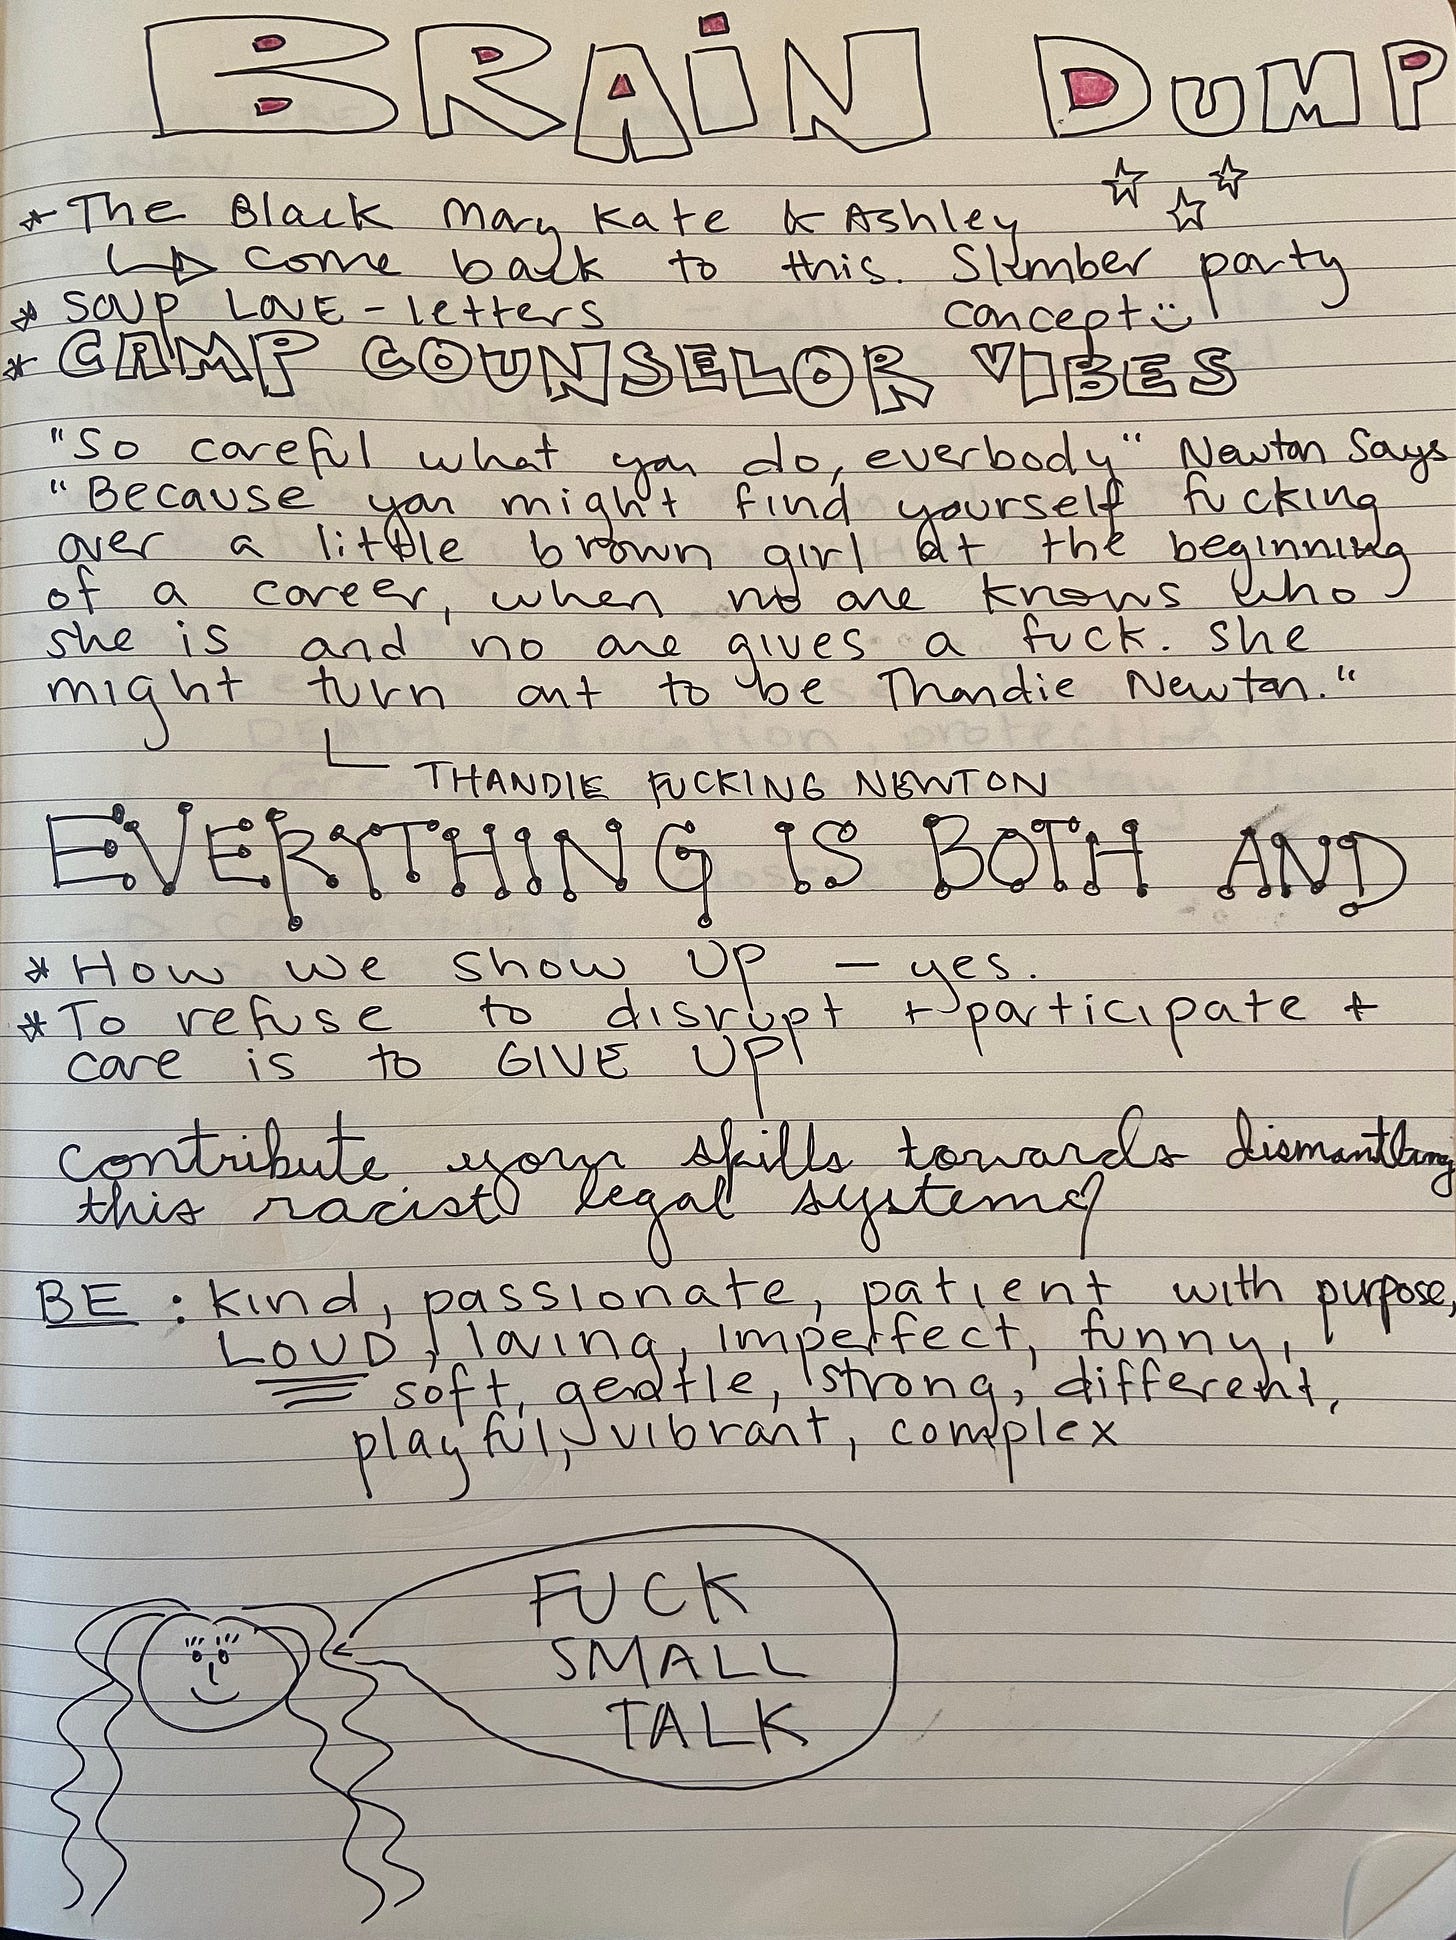 BRAiN DUMP
* The Black Mary Kate & Ashley
↳ Come back to this. Slumber party
* SOUP LOVE - letters concept :)
* CAMP COUNSELOR VIBES
"So careful what you do, everbody" Newton Says
"Because you might find yourself fucking
over a little brown girl at the beginning
of a career, when no one knows who
she is and no one gives a fuck. She
might turn out to be Thandie Newton."
THANDIE FUCKING NEWTON
EVERYTHING IS BOTH AND
* How we show UP - yes.
* To refuse to disrupt + participate +
care is to GIVE UP!
contribute your skills towards dismantling
this racist legal system
BE: kind, passionate, patient with purpose,
LOUD, loving, imperfect, funny,
soft, gentle, strong, different,
playful, vibrant, complex
FUCK
SMALL
TALK